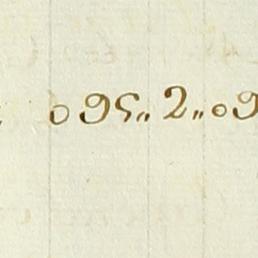 095„ 2„ 09